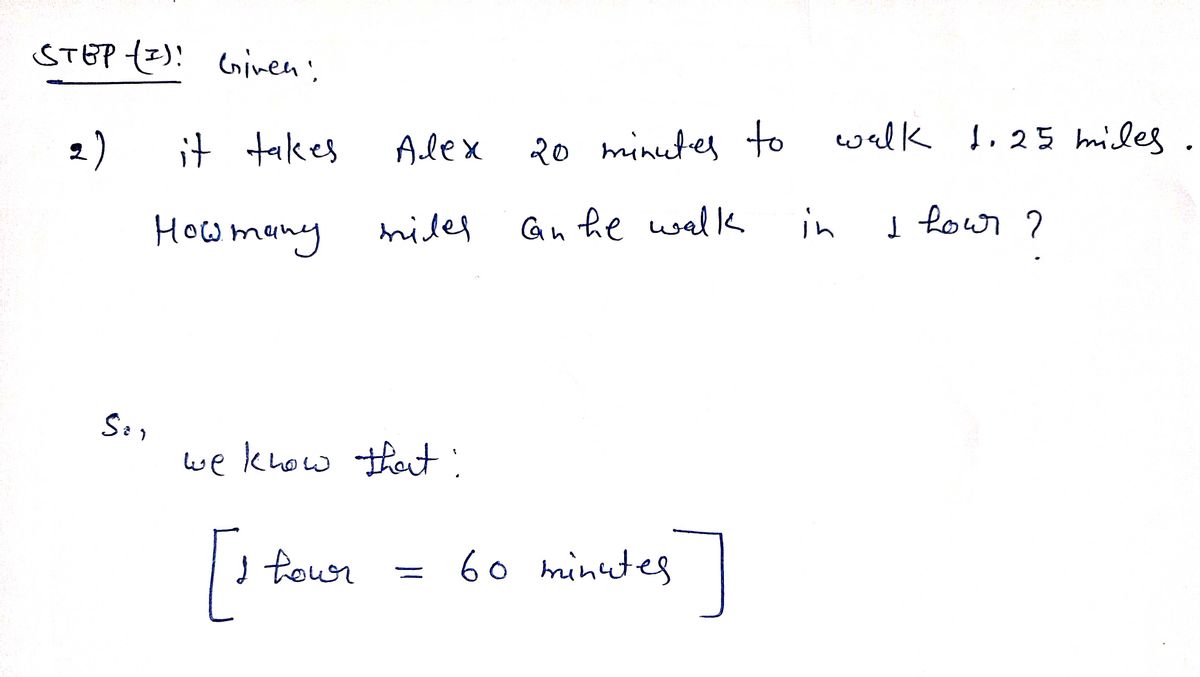 STEP-(I): Given:
2) it takes Alex 20 minutes to walk 1.25 miles.
How many miles can he walk in 1 hour?
So,
we know that:
[1 hour = 60 minutes]